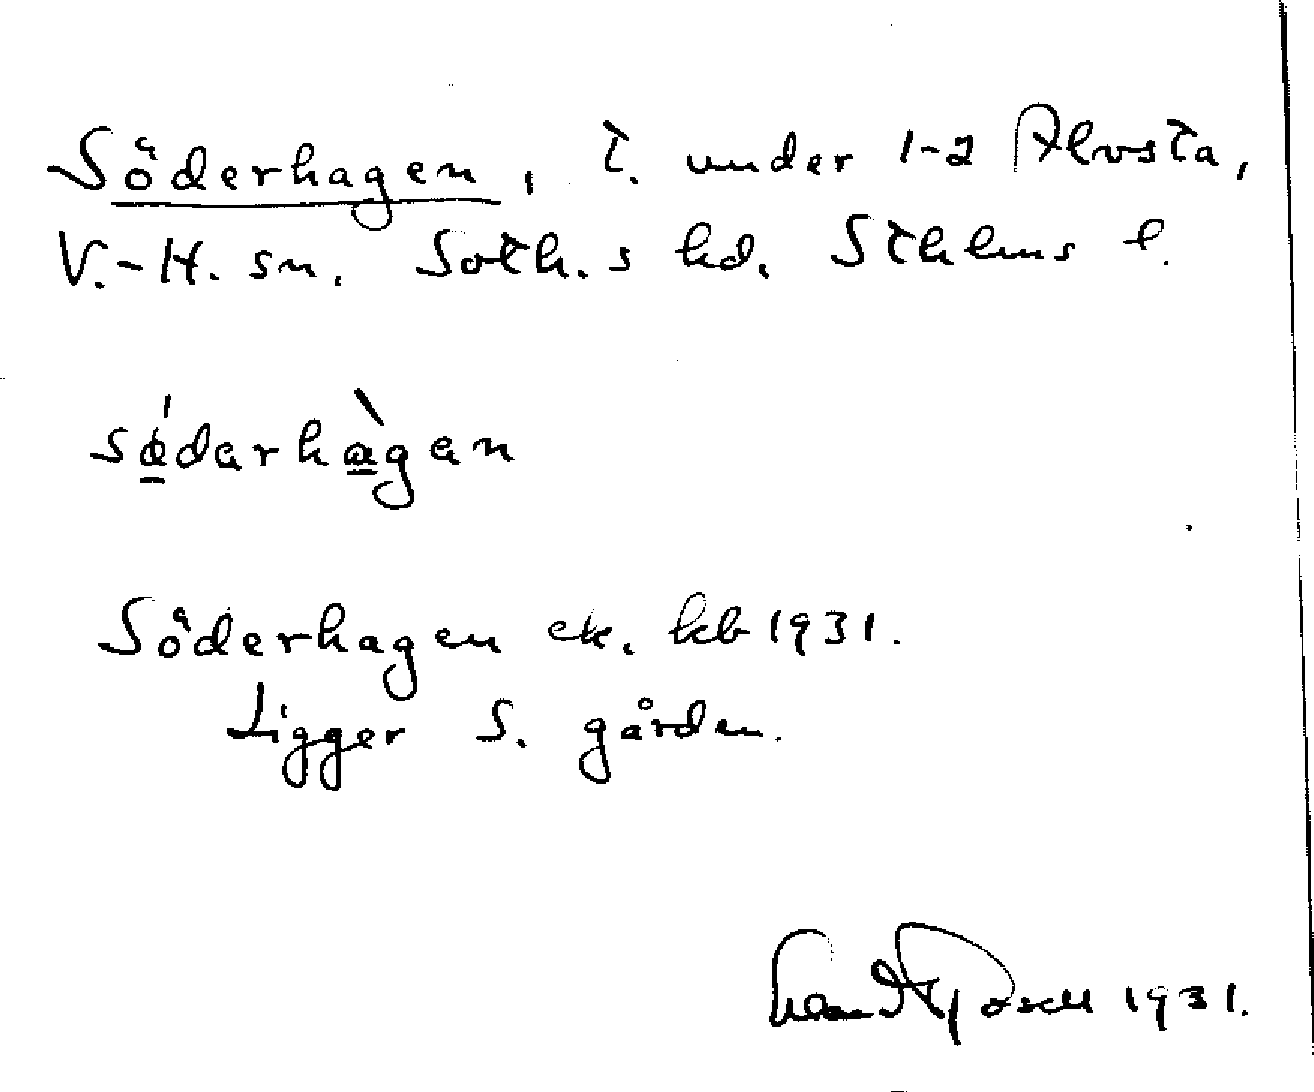 Söderhagen, t. under 1-2 Alvsta,
V.-H. sn. Soth.s hd. Sthlms l.
södarhàgan
Söderhagen ek. kb 1931.
Ligger S. gården.
1931.